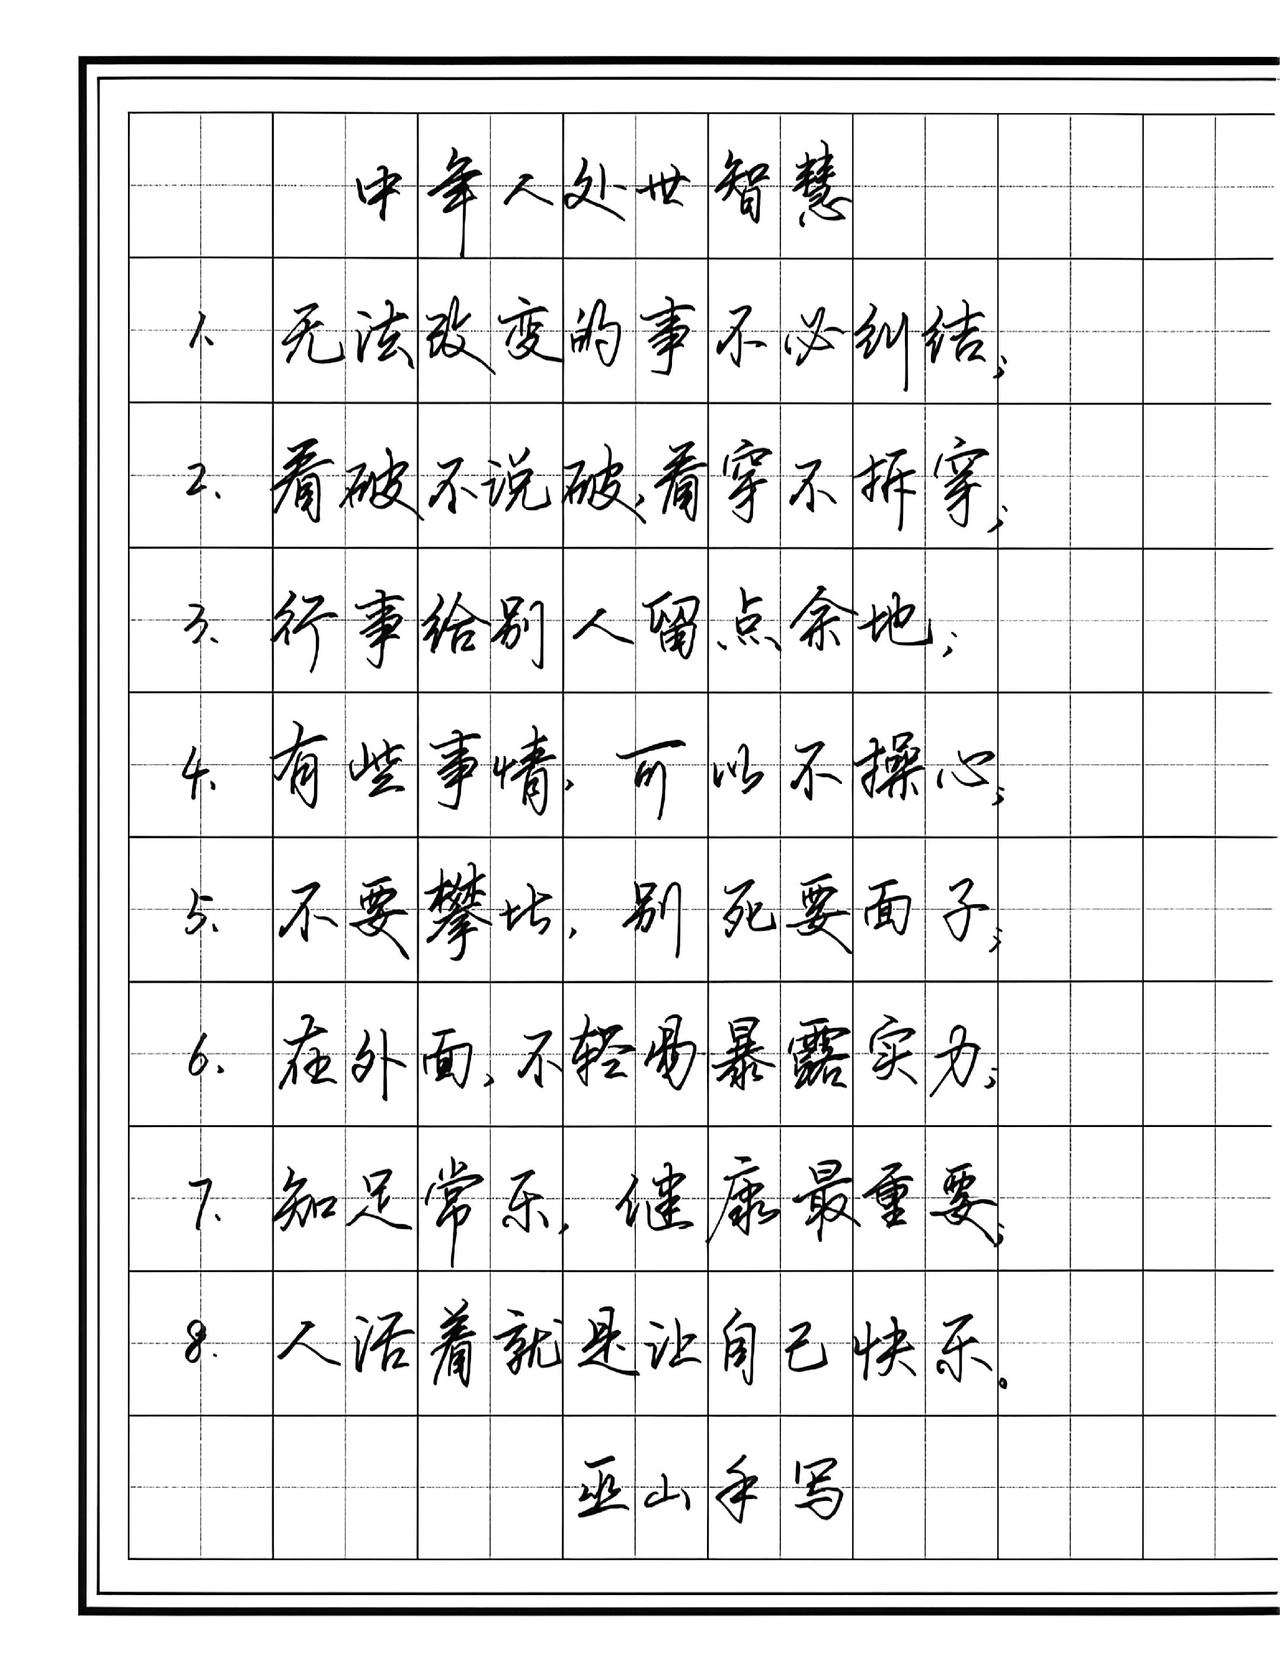 中年人处世智慧
1、无法改变的事不必纠结；
2、看破不说破，看穿不拆穿；
3、行事给别人留点余地；
4、有些事情，可以不操心；
5、不要攀比，别死要面子；
6、在外面，不轻易暴露实力；
7、知足常乐，健康最重要；
8、人活着就是让自己快乐。
巫山手写